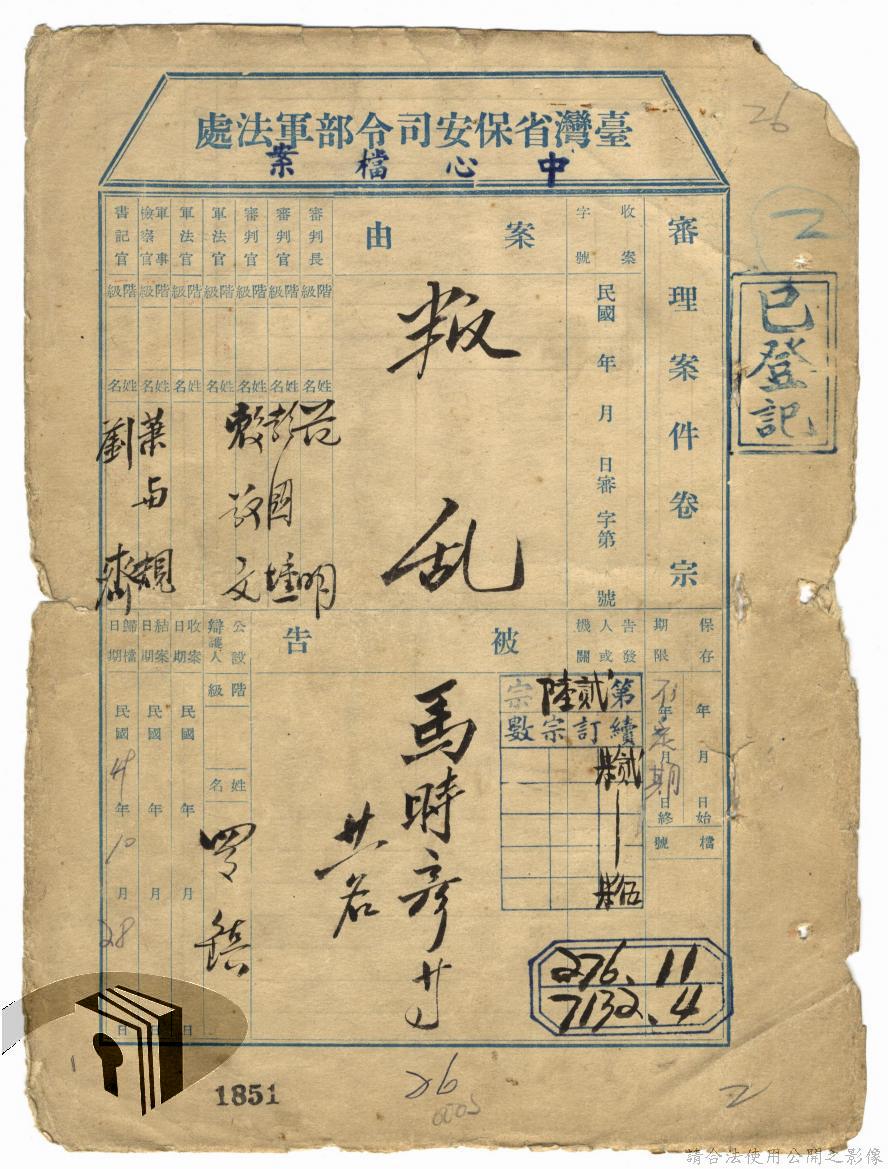 臺灣省保安司令部軍法處
中心檔案
審理案件卷宗
收案字號
民國 年 月 日審字第 號
案由
叛乱
審判長 階級 姓名
審判官 階級 姓名 彭國壎
審判官 階級 姓名 殷敬文
軍法官 階級 姓名
軍法官 階級 姓名
軍事檢察官 階級 姓名
書記官 階級 姓名
已登記
保存期限
年 月 日始
年 月 日終
不定期
檔號
告發人或機關
第貳陸宗
續訂宗數
貳
伍
被告
馬時彥等
廿名
公設辯護人
階級
姓名
收案日期 民國 年 月 日
結案日期 民國 年 月 日
歸檔日期 民國 年 10 月 28 日
276.11
7132.4
26
2
1851
26
0005
2
請合法使用公開之影像